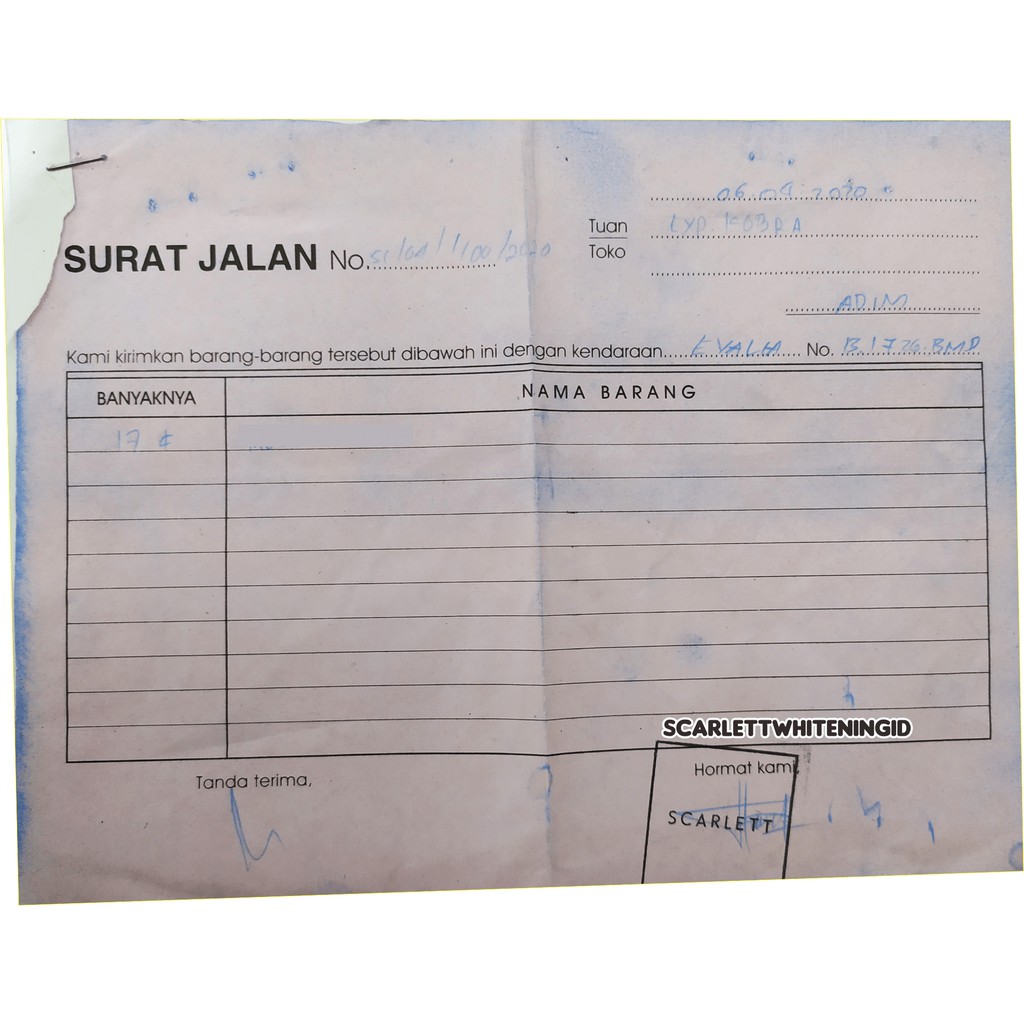 06.04.2020
Tuan
Toko
SURAT JALAN No.
ADIM
Kami kirimkan barang-barang tersebut dibawah ini dengan kendaraan EVALIA No. B.1726.BMD
BANYAKNYA NAMA BARANG
17
SCARLETTWHITENINGID
Tanda terima, Hormat kami,
SCARLETT